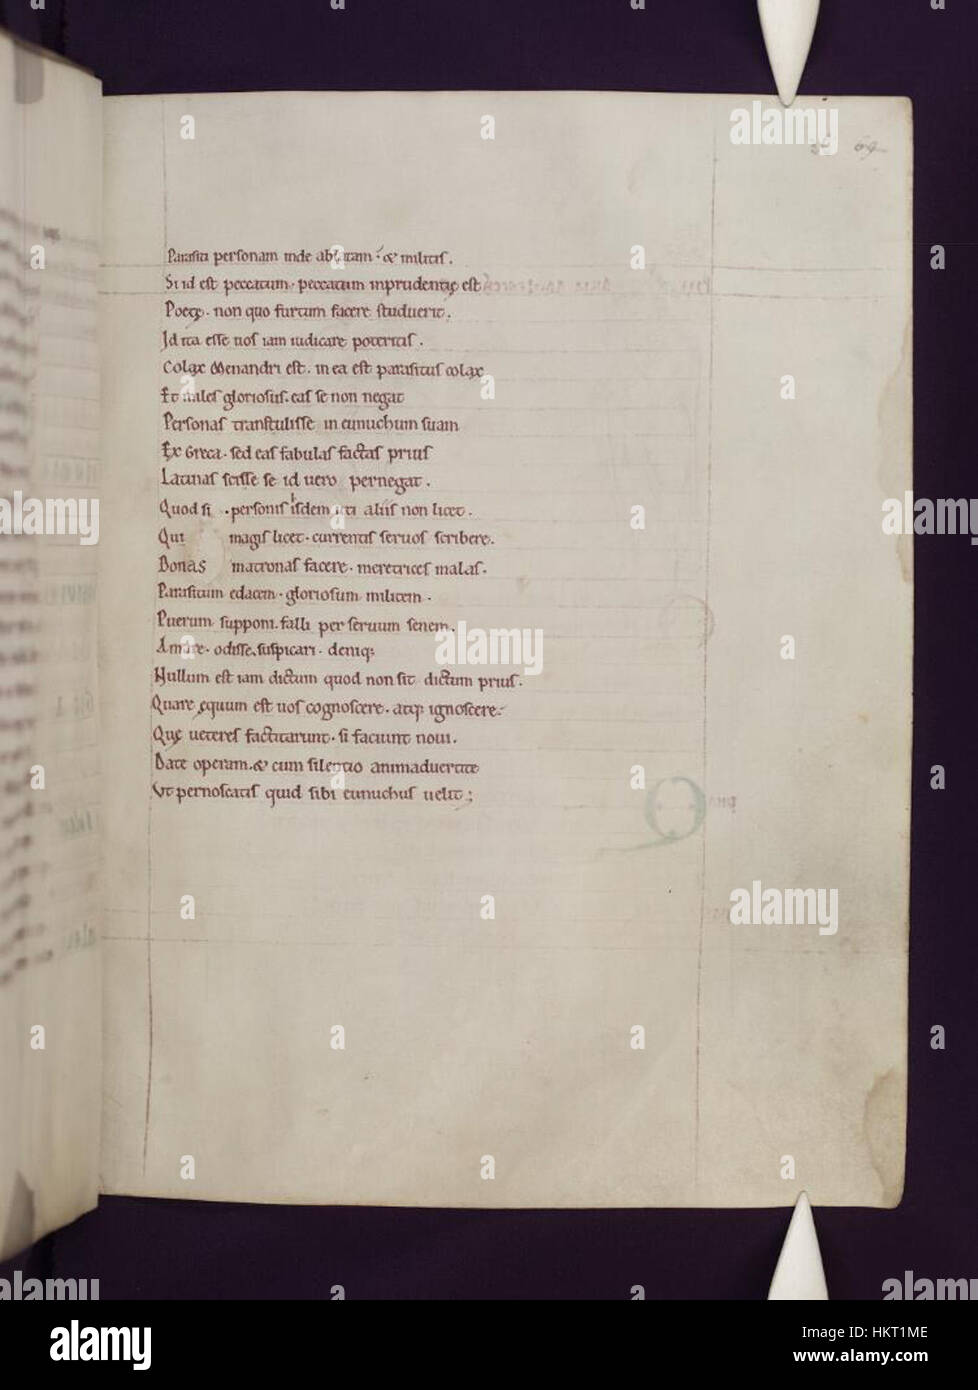 69
Parasiti personam inde ablatam · & militis.
Si id est peccatum · peccatum inprudentię est
Poetę · non quo furtum facere studuerit.
Id ita esse uos iam iudicare poteritis.
Colax Menandri est · in ea est parasitus colax
Et miles gloriosus · eas se non negat
Personas transtulisse in eunuchum suam
Ex Greca · sed eas fabulas factas prius
Latinas scisse se id uero pernegat.
Quod si · personis isdem uti aliis non licet.
Qui magis licet · currentis seruos scribere.
Bonas matronas facere · meretrices malas.
Parasitum edacem · gloriosum militem.
Puerum supponi · falli per seruum senem.
Amare · odisse · suspicari · deniq;
Nullum est iam dictum quod non sit dictum prius.
Quare ęquum est uos cognoscere · atq; ignoscere.
Quę ueteres factitarunt · si faciunt noui.
Date operam · & cum silentio animaduertite
Vt pernoscatis quid sibi eunuchus uelit;
a alamy stock photo
HKT1ME
www.alamy.com